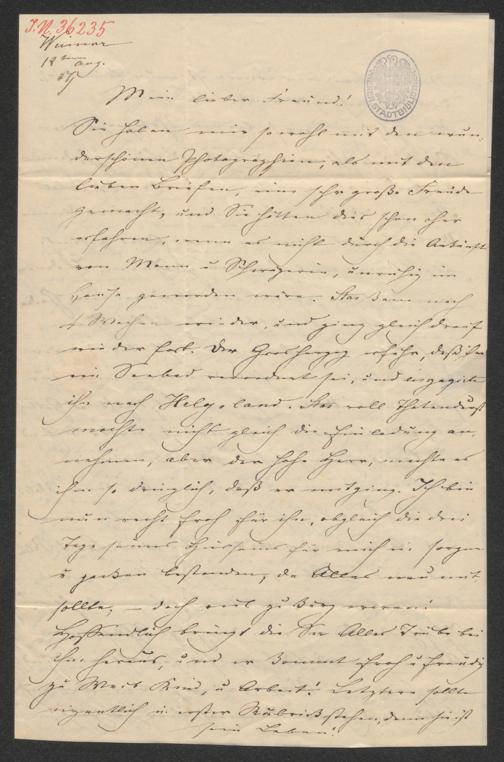 J.N. 36235
Weimar
18ten Aug.
57
STADTBIBL
Mein lieber Freund!
Sie haben mir sowohl mit den wun-
derschönen Photographien, als mit den
lieben Briefen, eine sehr große Freude
gemacht, und Sie hätten dies schon eher
erfahren, wenn es nicht durch die Ankunft
von Mann u Schwägerin, unruhig im
Hause geworden wäre. kam nach
4 Wochen wieder, und ging gleich drauf
wieder fort. Der Grosherzog erfuhr, daß ihm
ein Seebad verordnet sei, und
ihn nach Helgoland. voll
mochte nicht gleich die Einladung an-
nehmen, aber der hohe Herr, machte es
ihm so dringlich, daß er mitging. Ich bin
nun recht froh für ihn, obgleich die drei
Tage seines Hierseins für mich in sorgen
u packen bestanden, da Alles neu mit
sollte, – doch
Hoffentlich bringt die See Alles Trübe bei
ihm heraus, und er kommt froh u freudig
zu Weib, Kind, u Arbeit! Letztere sollte
eigentlich in erster Rubrik stehen, denn sie ist
sein Leben!